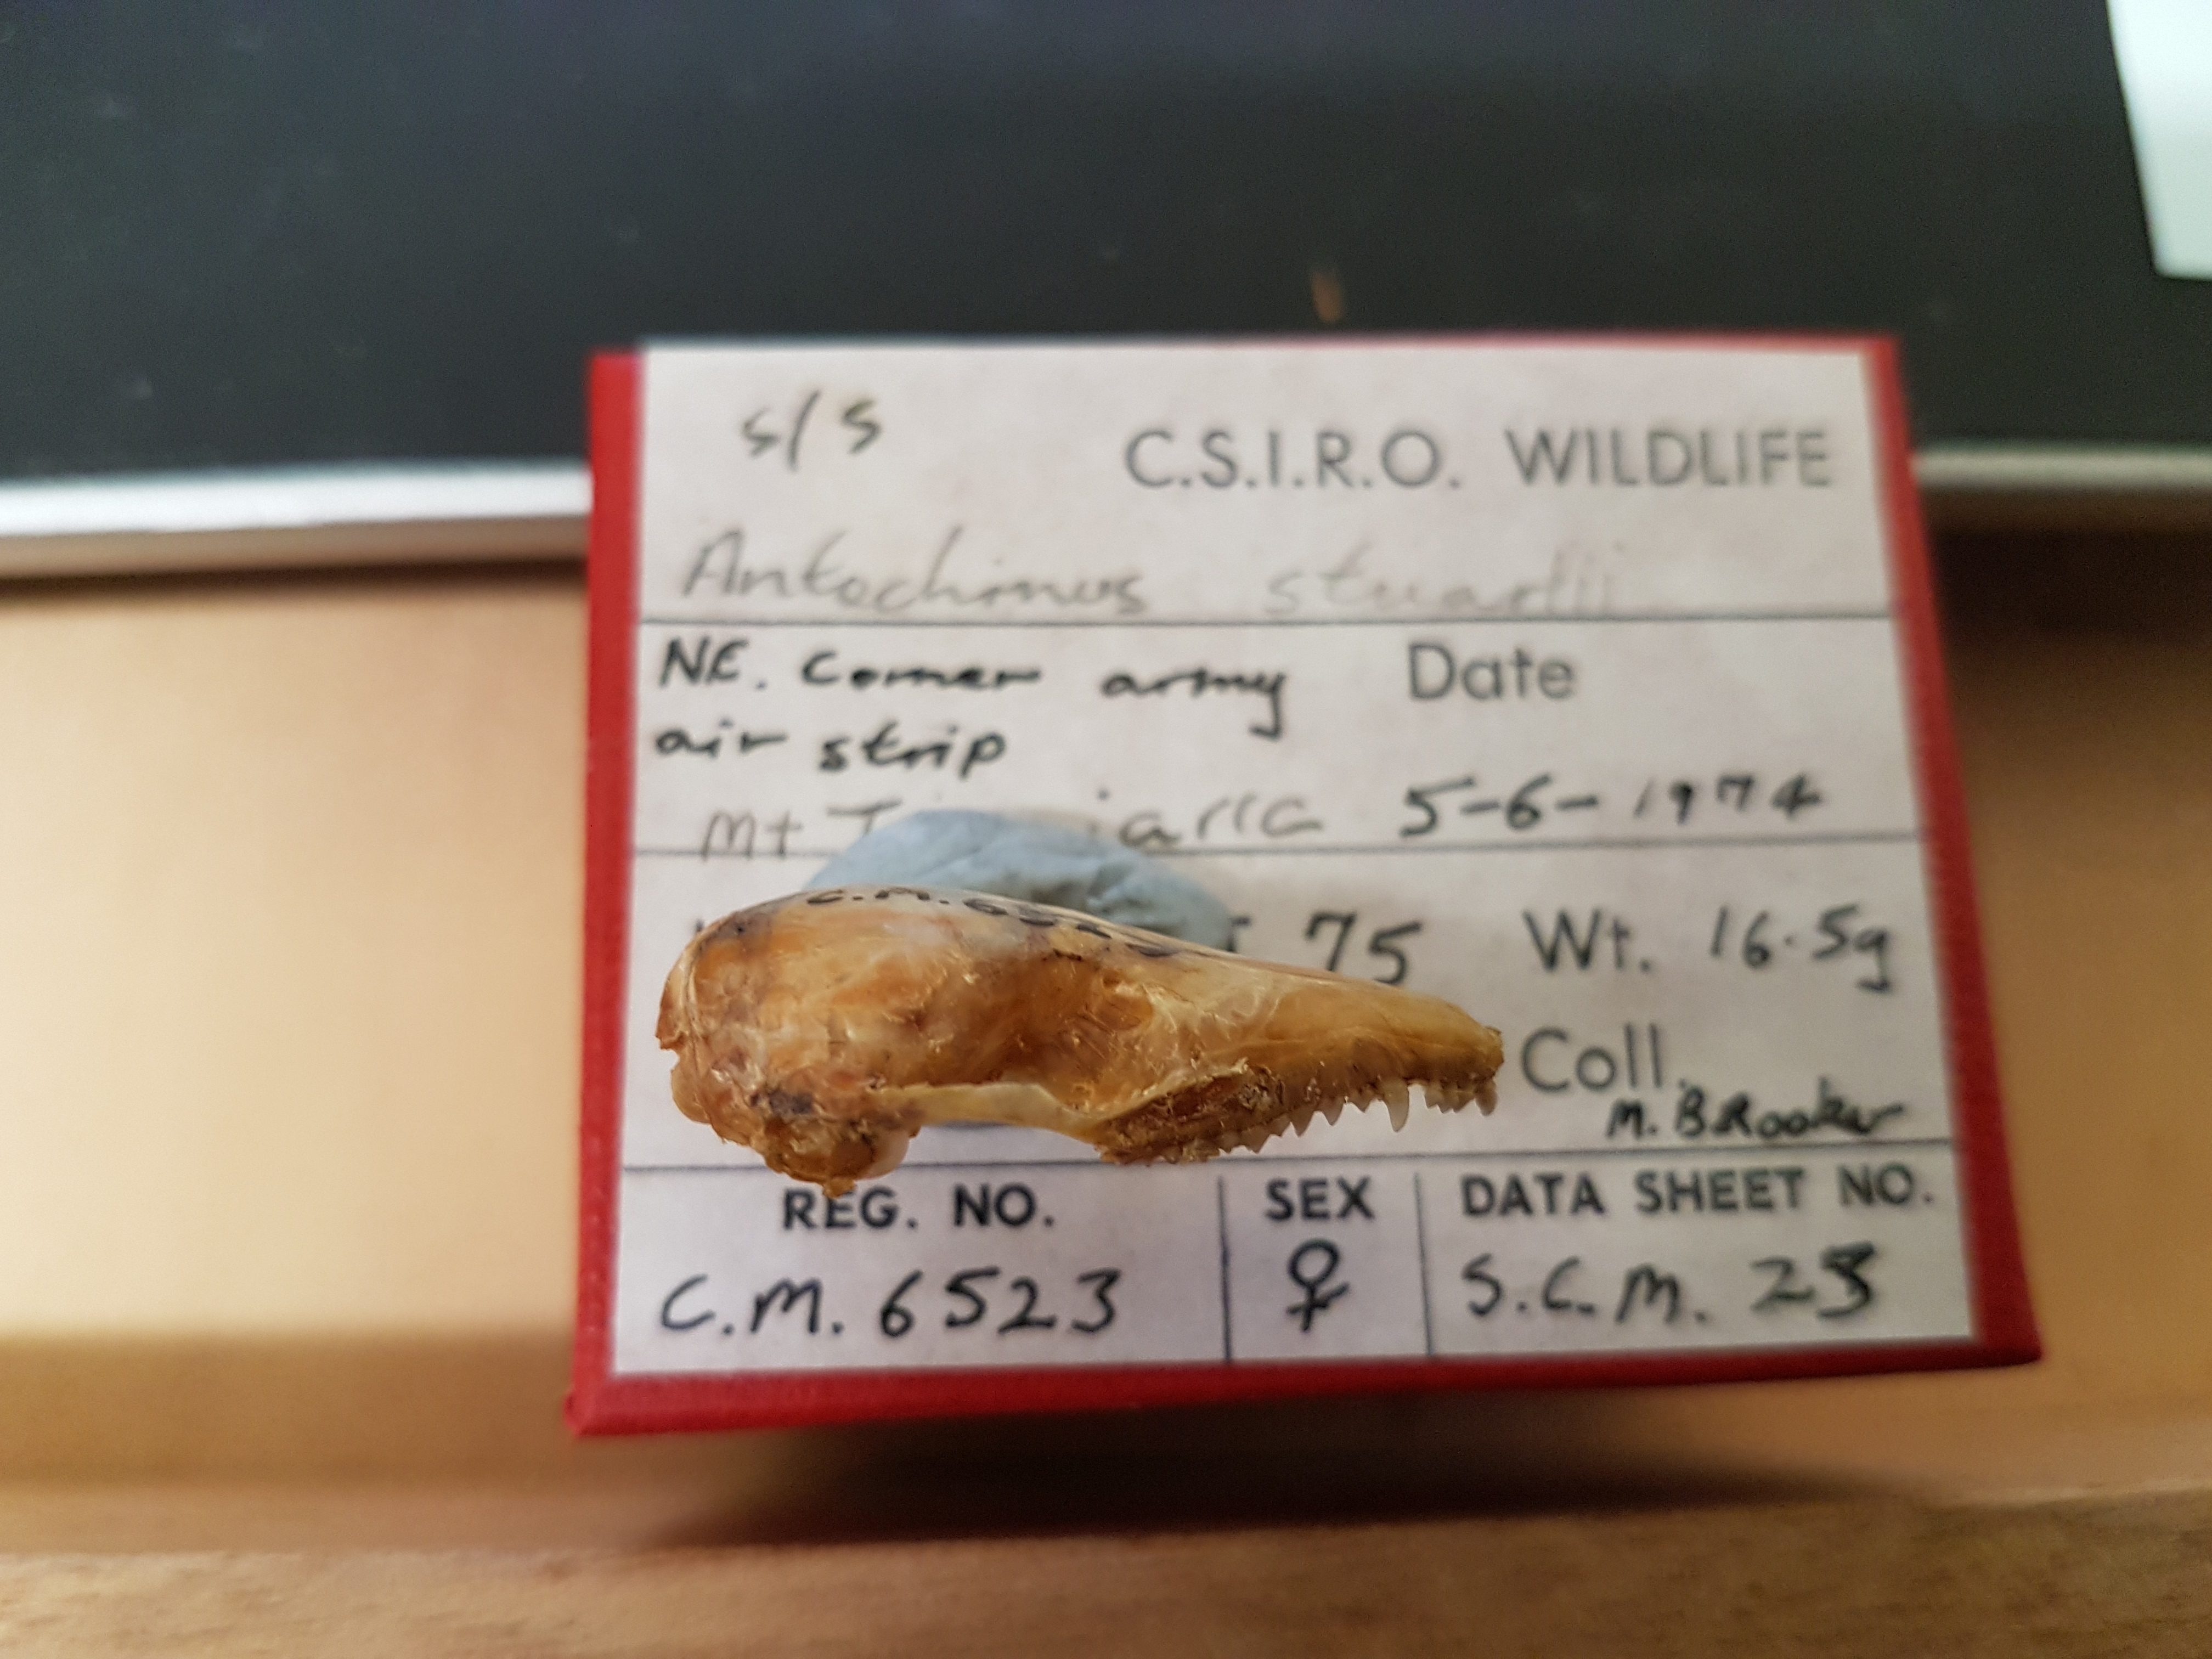 s/s
C.S.I.R.O. WILDLIFE
Antechinus stuartii
NE. Corner army
air strip
Date
Mt
5-6-1974
75 Wt. 16.5g
C.M. 6523
Coll.
M. BRooker
REG. NO. SEX DATA SHEET NO.
C.M. 6523 ♀ S.C.M. 23